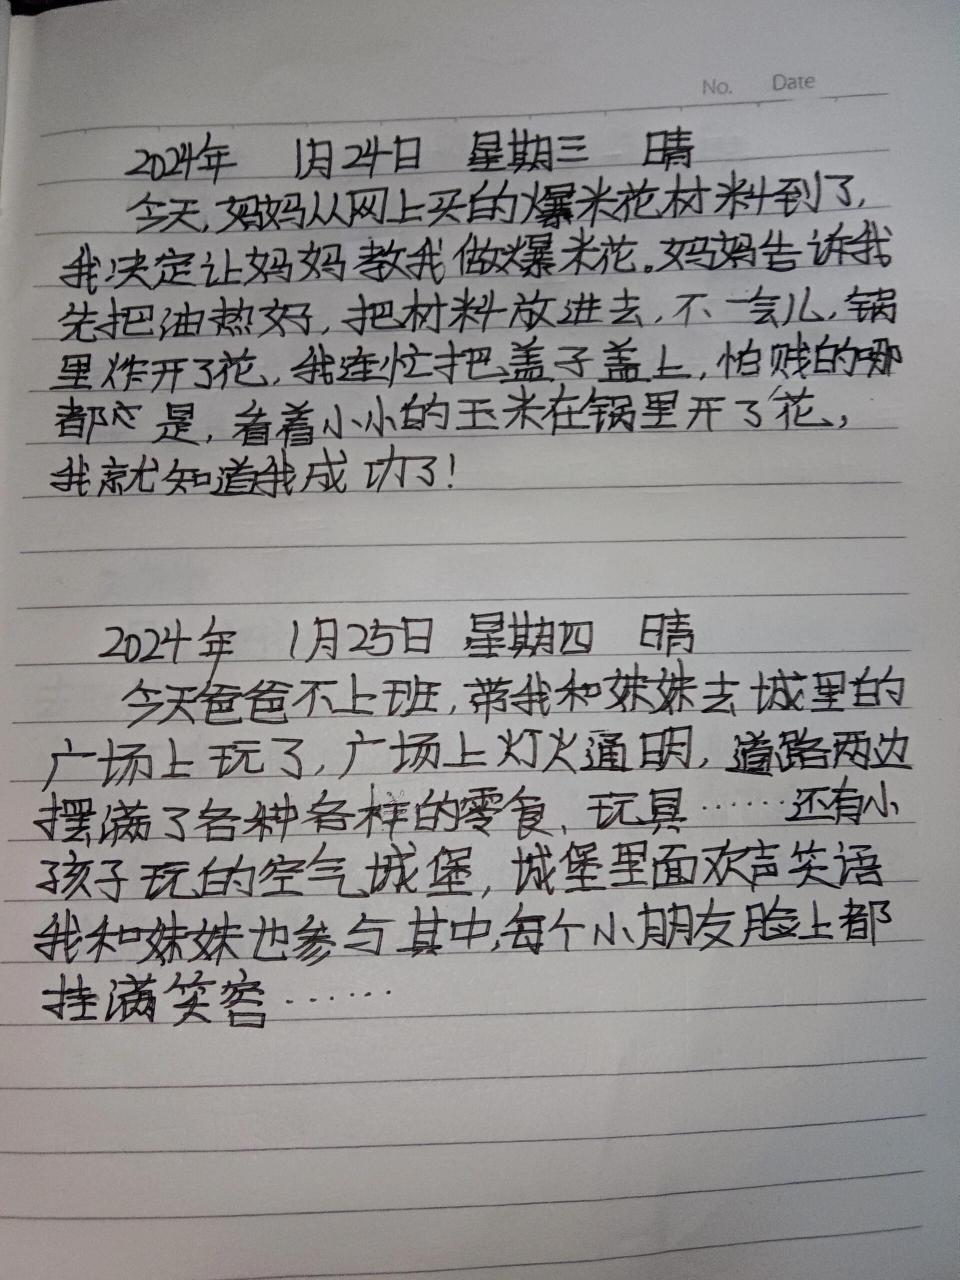 No. Date
2024年 1月24日 星期三 晴
今天,妈妈从网上买的爆米花材料到了,
我决定让妈妈教我做爆米花。妈妈告诉我
先把油热好,把材料放进去,不一会儿,锅
里炸开了花,我连忙把盖子盖上,怕贱的哪
都是,看着小小的玉米在锅里开了花,
我就知道我成功了!
2024年 1月25日 星期四 晴
今天爸爸不上班,带我和妹妹去城里的
广场上玩了,广场上灯火通明,道路两边
摆满了各种各样的零食、玩具……还有小
孩子玩的空气城堡,城堡里面欢声笑语
我和妹妹也参与其中,每个小朋友脸上都
挂满笑容……